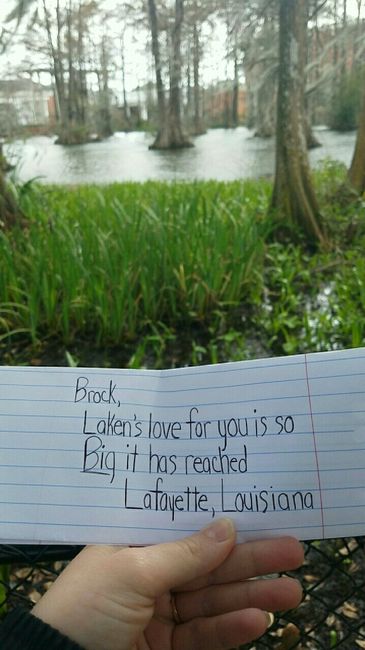 Brock,
Laken's love for you is so
Big it has reached
Lafayette, Louisiana